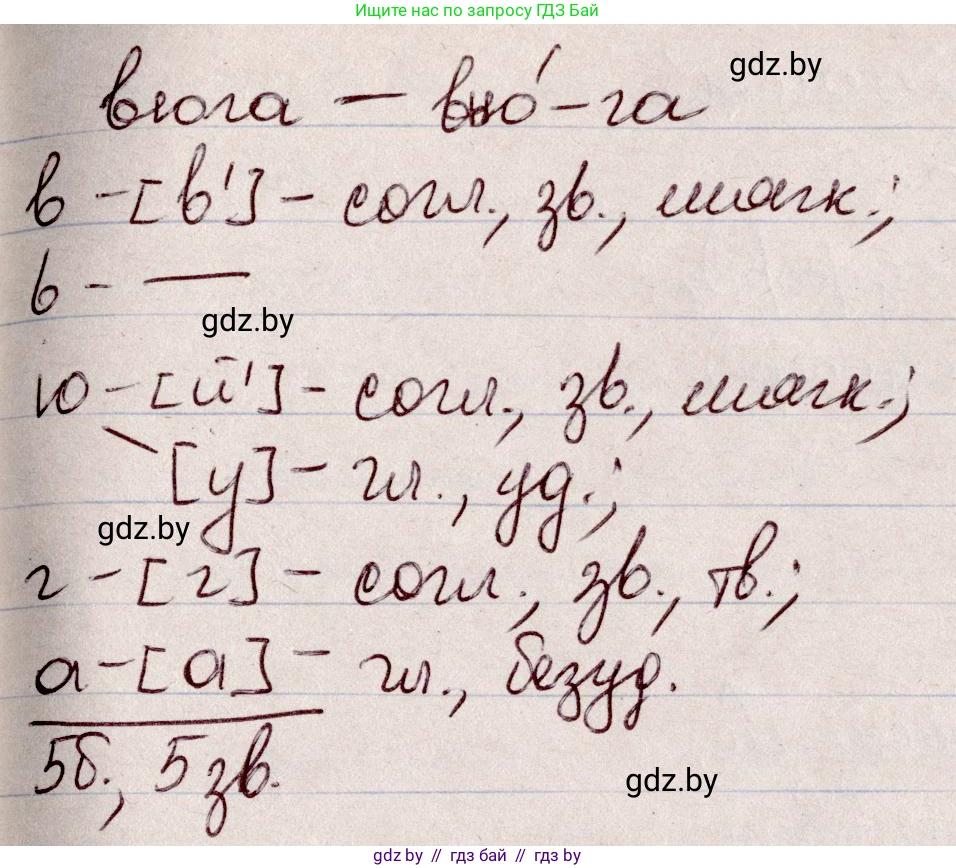 Ищите нас по запросу ГДЗ Бай
gdz.by
вьюга — вью́-га
в - [в'] - согл., зв., мягк.;
ь - —
gdz.by
ю - [й'] - согл., зв., мягк.;
\ [у] - гл., уд.;
gdz.by
г - [г] - согл., зв., тв.;
а - [а] - гл., безуд.
5б., 5 зв.
gdz.by
gdz.by // гдз бай // gdz by